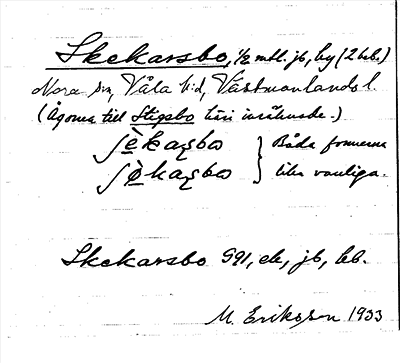 Skekarsbo, 1/2 mtl. jb, by (2 beb.)
Nora sn, Våla h:d, Västmanlands l.
(Ägorna till Stigsbo äro inräknade.)
ʃèkaʂbo } Båda formerna
ʃø̀kaʂbo } lika vanliga.
Skekarsbo GGA, ek, jb, kb.
M. Eriksson 1933